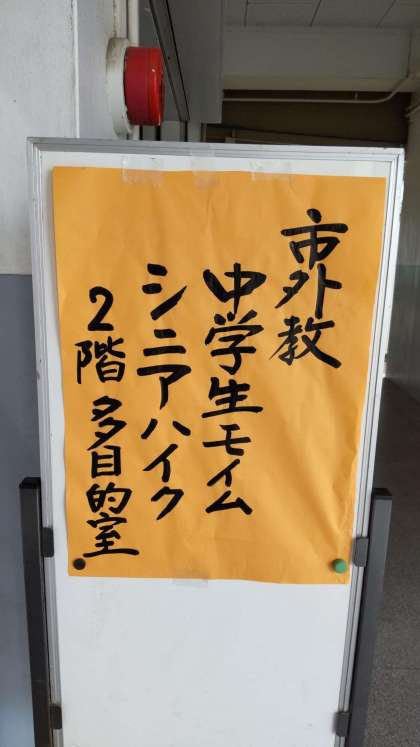 市外教
中学生モイム
シニアハイク
2階多目的室